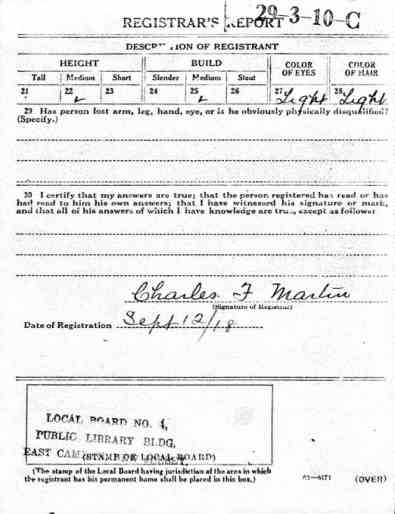 REGISTRAR'S REPORT 29-3-10-C
DESCR ION OF REGISTRANT
HEIGHT BUILD COLOR OF EYES COLOR OF HAIR
Tall Medium Short Slender Medium Stout
21 22 ✓ 23 24 25 ✓ 26 27 Light 28 Light
29 Has person lost arm, leg, hand, eye, or is he obviously physically disqualified?
(Specify.)
30 I certify that my answers are true; that the person registered has read or has
had read to him his own answers; that I have witnessed his signature or mark,
and that all of his answers of which I have knowledge are true, except as follows:
Charles F Martin
(Signature of Registrar)
Date of Registration Sept 12/18
LOCAL BOARD NO. 4,
PUBLIC LIBRARY BLDG,
EAST
(STAMP OF LOCAL BOARD)
(The stamp of the Local Board having jurisdiction of the area in which
the registrant has his permanent home shall be placed in this box.)
(OVER)